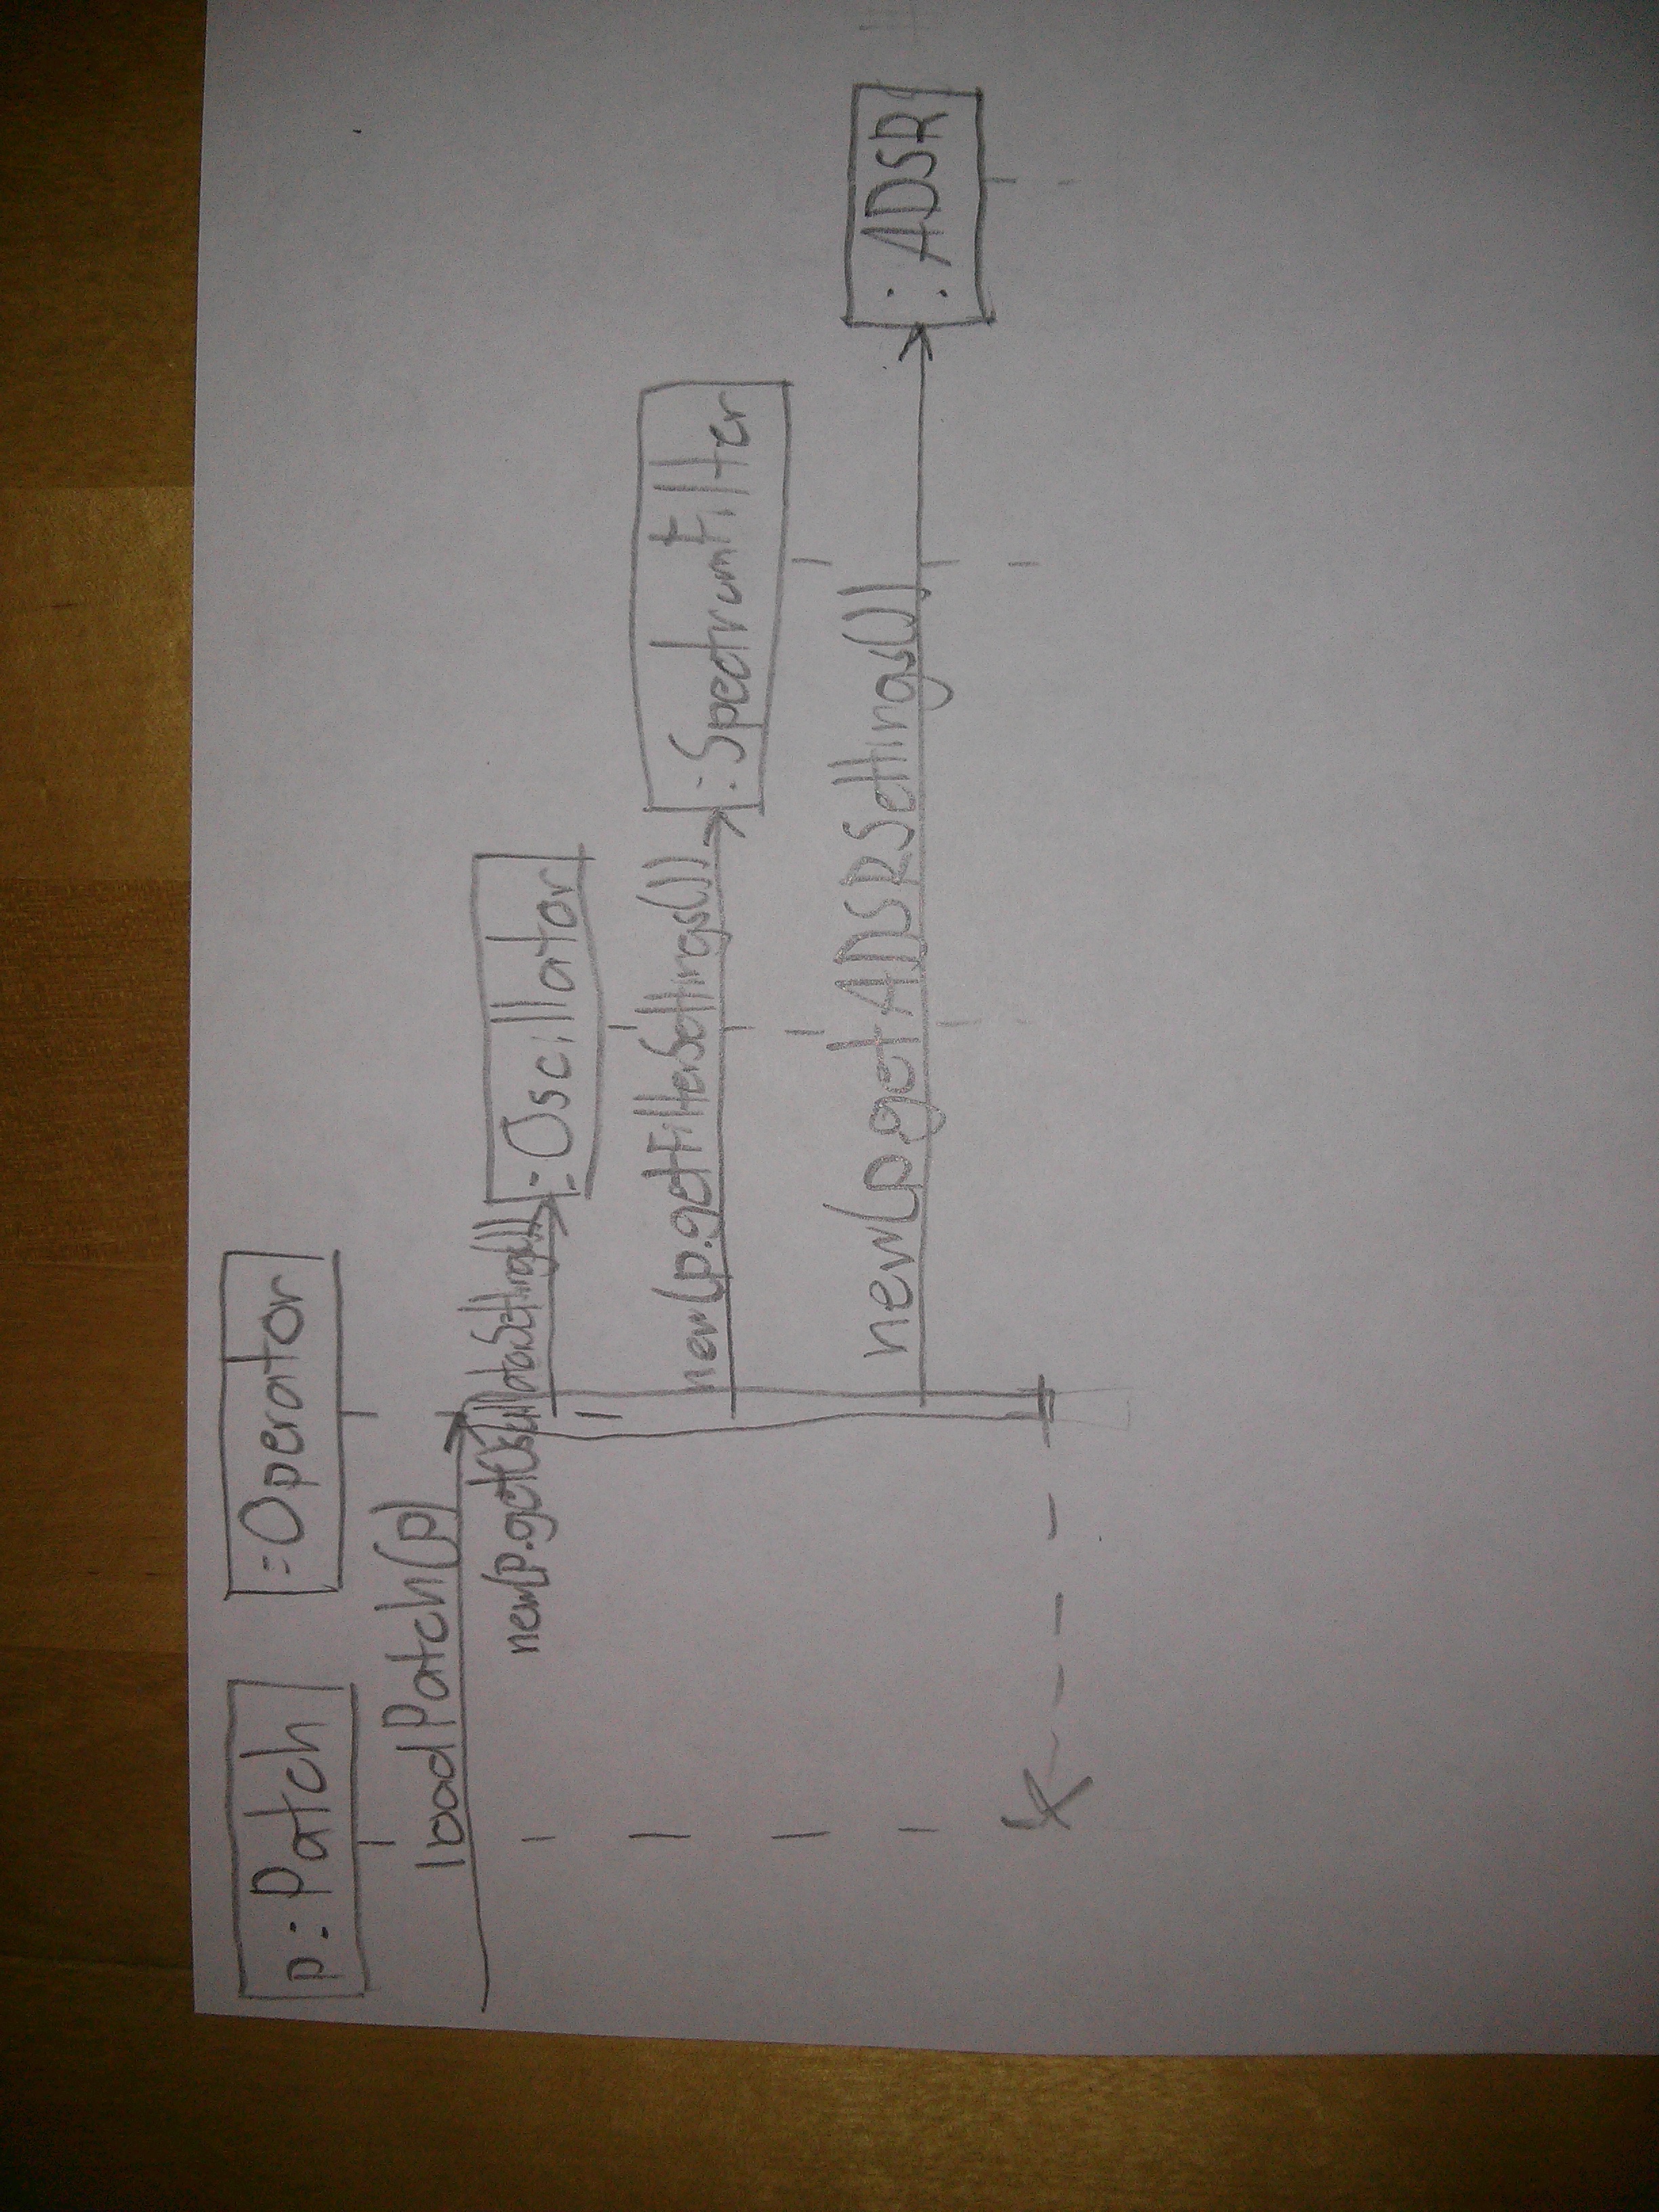 p:Patch
:Operator
loadPatch(p)
new(p.getOscillatorSettings())
:Oscillator
new(p.getFilterSettings())
:SpectrumFilter
new(p.getADSRSettings())
:ADSR